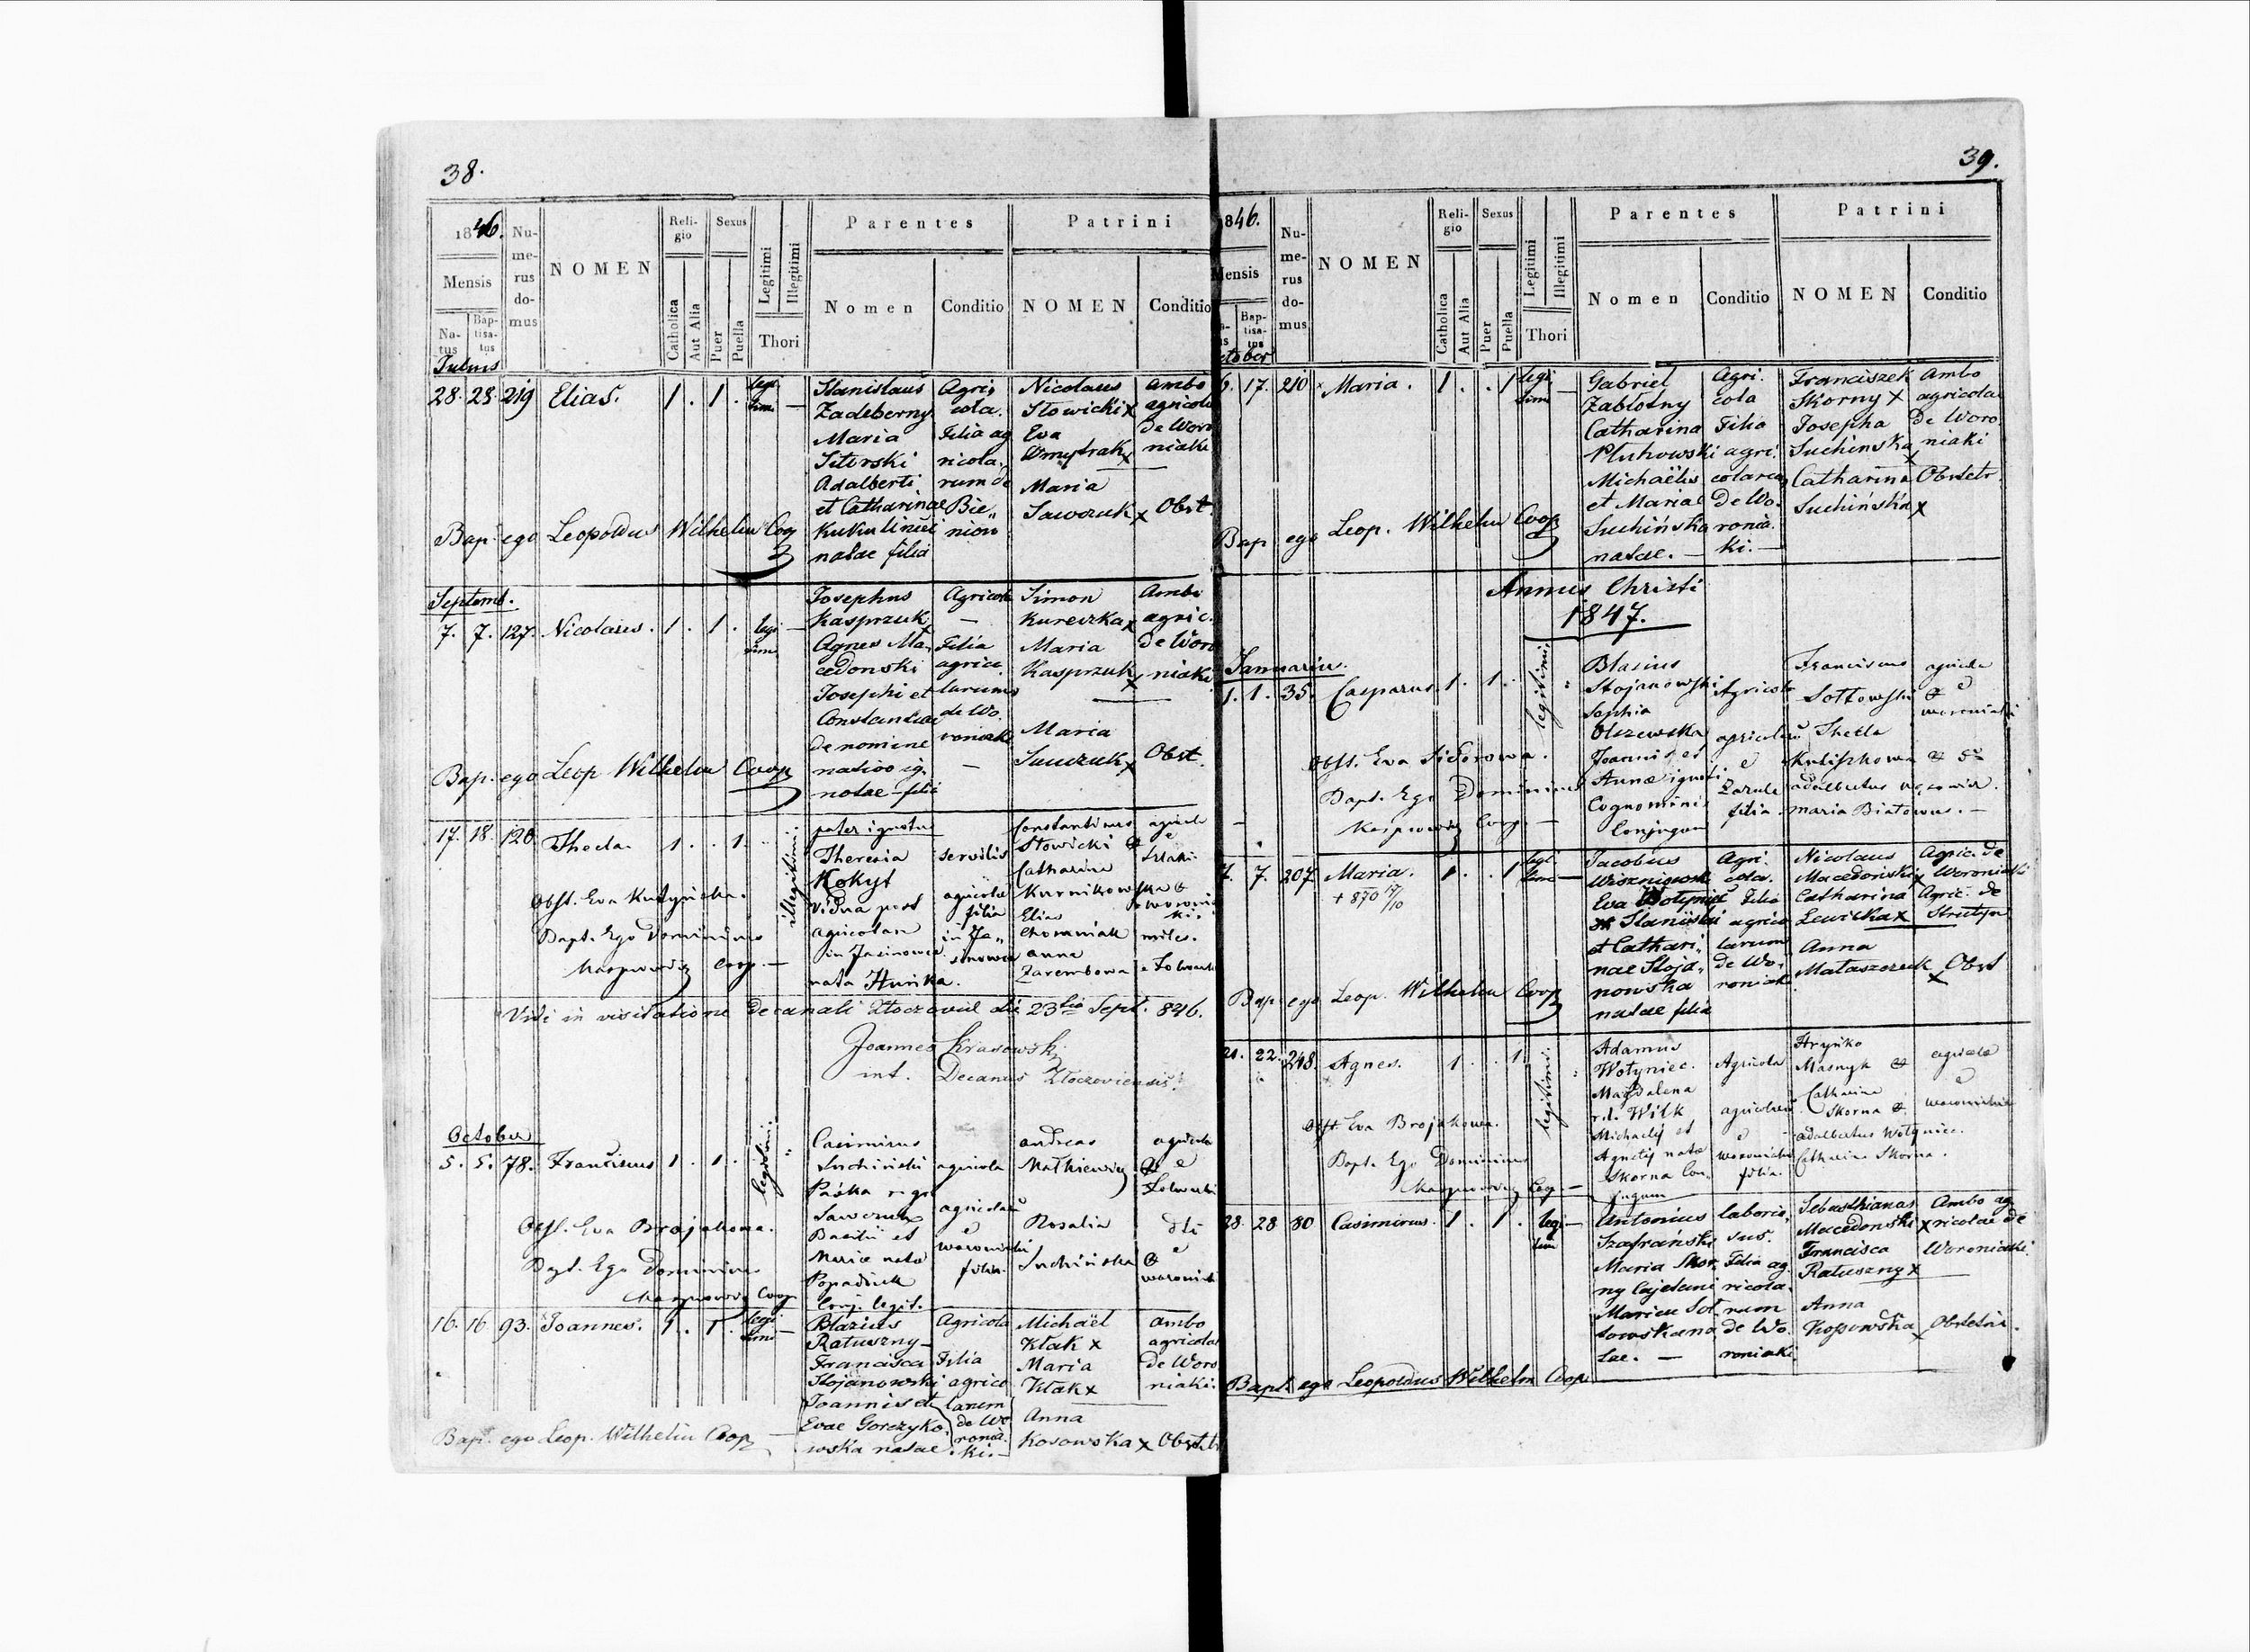 38.
1846.
Mensis
Na-
tus
Bap-
tisa-
tus
Nu-
me-
rus
do-
mus
NOMEN
Reli-
gio
Catholica
Aut Alia
Sexus
Puer
Puella
Legitimi
Illegitimi
Thori
Parentes
Nomen
Conditio
Patrini
NOMEN
Conditio
Julius
28. 28. 219 Elias. 1 . 1 . legi
timi —
Stanislaus
Zadeberny
Maria
Sitorski
Adalberti
et Catharinae
Kukulinski
natae filia
Agri,
cola.
Filia ag
ricola,
rum de
Bie,,
niow
Nicolaus
Słowicki x
Eva
Dmytrak x
Maria
Sawczuk x Obst
Ambo
agricola
de Woro
niaki
Bap. ego Leopoldus Wilhelm Coop
Septemb.
7. 7. 127. Nicolaus. 1 . 1 . legi
timi
Josephus
Kasprzuk
Agnes Ma,
cedonski
Josephi et
Constantiae
de nomine
nativo ig,
notae filia
Agricola
—
Filia
agrico
larum
de Wo,
roniaki
—
Simon
Kureczka x
Maria
Kasprzuk x
Maria
Sawczuk x Obst.
Ambo
agric.
de Woro
niaki
Bap. ego Leop Wilhelm Coop
17. 18. 120. Thecla. 1 . . 1. illegitimi
pater ignotus
Theresia
Kokyt
Vidua post
agricolam
in Jasinowce
nata Hurika.
servilis
agricolae
filia
in Ja,,
sinowce
Constantinus
Słowicki et
Catharina
Kurnikowska et
Elias
Chominiak
Anna
Zarembowa
agricola
e
miles.
Obst. Eva
Bapt. Ego Dominicus
Kasprowicz Coop. —
Vidi in visitatione decanali Złoczoviae die 23tia Sept. 846.
Joannes Krasowski
int. Decanus Złoczoviensis.
October
5. 5. 78. Franciscus 1 . 1 . legitimi
Casimirus
Suchiński
Paśka
Sawczuk
Basilii et
Mariae nata
Popadiuk
Conj. legit.
agricola
agricolarum
e
woroniaki
filia.
Andreas
Mathiewicz
Rosalia
Suchińska
agricola
e
Obst. Eva Brojakowa.
Bapt. Ego Dominicus
Kasprowicz Coop
16. 16 93. Joannes. 1 . 1 . legi
timi —
Blazius
Ratuszny —
Francisca
Stojanowski
Joannis et
Evae Gorczyko,
wska natae.
Agricola
Filia
agrico
larum
de Wo
ronia
ki. —
Michaël
Kłak x
Maria
Kłak x
Anna
Kosowska x Obst.
Ambo
agricolae
de Woro
niaki.
Bap. ego Leop. Wilhelm Coop
39.
846.
Mensis
Bap-
tisa-
tus
Nu-
me-
rus
do-
mus
NOMEN
Reli-
gio
Catholica
Aut Alia
Sexus
Puer
Puella
Legitimi
Illegitimi
Thori
Parentes
Nomen
Conditio
Patrini
NOMEN
Conditio
October
6. 17. 210 Maria. 1 . . 1 legi
timi —
Gabriel
Zabłotny
Catharina
Pluhowski
Michaëlis
et Mariae
Suchińska
natae. —
Agri.
cola
Filia
agri,
colarum
de Wo,
ronia.
ki. —
Franciszek
Skorny x
Josepha
Suchinska x
Catharina
Suchińska x
Ambo
agricolae
de Woro
niaki
Obstetr.
Bap ego Leop. Wilhelm Coop
Annus Christi
1847.
Januarius.
1. 1. 35. Casparus. 1 . 1 . legitimi
Blasius
Stojanowski
Sophia
Olszewska
Joannis et
Annae ignoti
Cognominis
Conjugum
Agricola
agricolarum
e
filia.
Franciscus
Sottowski
Thecla
Adalbertus
Maria Białowus. —
agricola
e
woroniaki
Obst. Eva Sidorowa.
Bapt. Ego Dominicus
Kasprowicz Coop. —
7. 7. 207 Maria. 1 . . 1 legi
timi —
+ 870 17/10
Jacobus
Wiszniowski
Eva Wołyniec
Stanislai
et Cathari,,
nae Stoja,,
nowska
natae filia
Agri.
cola.
Filia
agrico
larum
de Wo,
roniaki
Nicolaus
Macedonski x
Catharina
Lewicka x
Anna
Mataszczuk x Obst
Agric. de
Woroniaki
Agric. de
Bap. ego Leop. Wilhelm Coop
21. 22. 248. Agnes. 1 . . 1 legitimi
Adamus
Wołyniec.
Magdalena
Wilk
Michaelis et
Agnetis nata
Skorna Con,
jugum
Agricola
agricolarum
e
woroniaki
filia.
Hryńko
Masnyk et
Catharina
Skorna et
Adalbertus Wołyniec.
Catharina Skorna.
agricola
e
woroniaki
Obst. Eva Brojakowa.
Bapt. Ego Dominicus
Kasprowicz Coop —
28. 28 80 Casimirus. 1 . 1 . legi
timi —
Antonius
Szafranski
Maria Skor,
ny Cajetani
Mariae Sot
towska na
tae. —
laborio,
sus.
Filia ag.
ricola,
rum
de Wo.
roniaki
Sebasthianus
Macedonski x
Francisca
Ratuszny x
Anna
Kossowska x
Ambo ag
ricolae de
Woroniaki.
Obstetri.
Bapt ego Leopoldus Wilhelm Coop